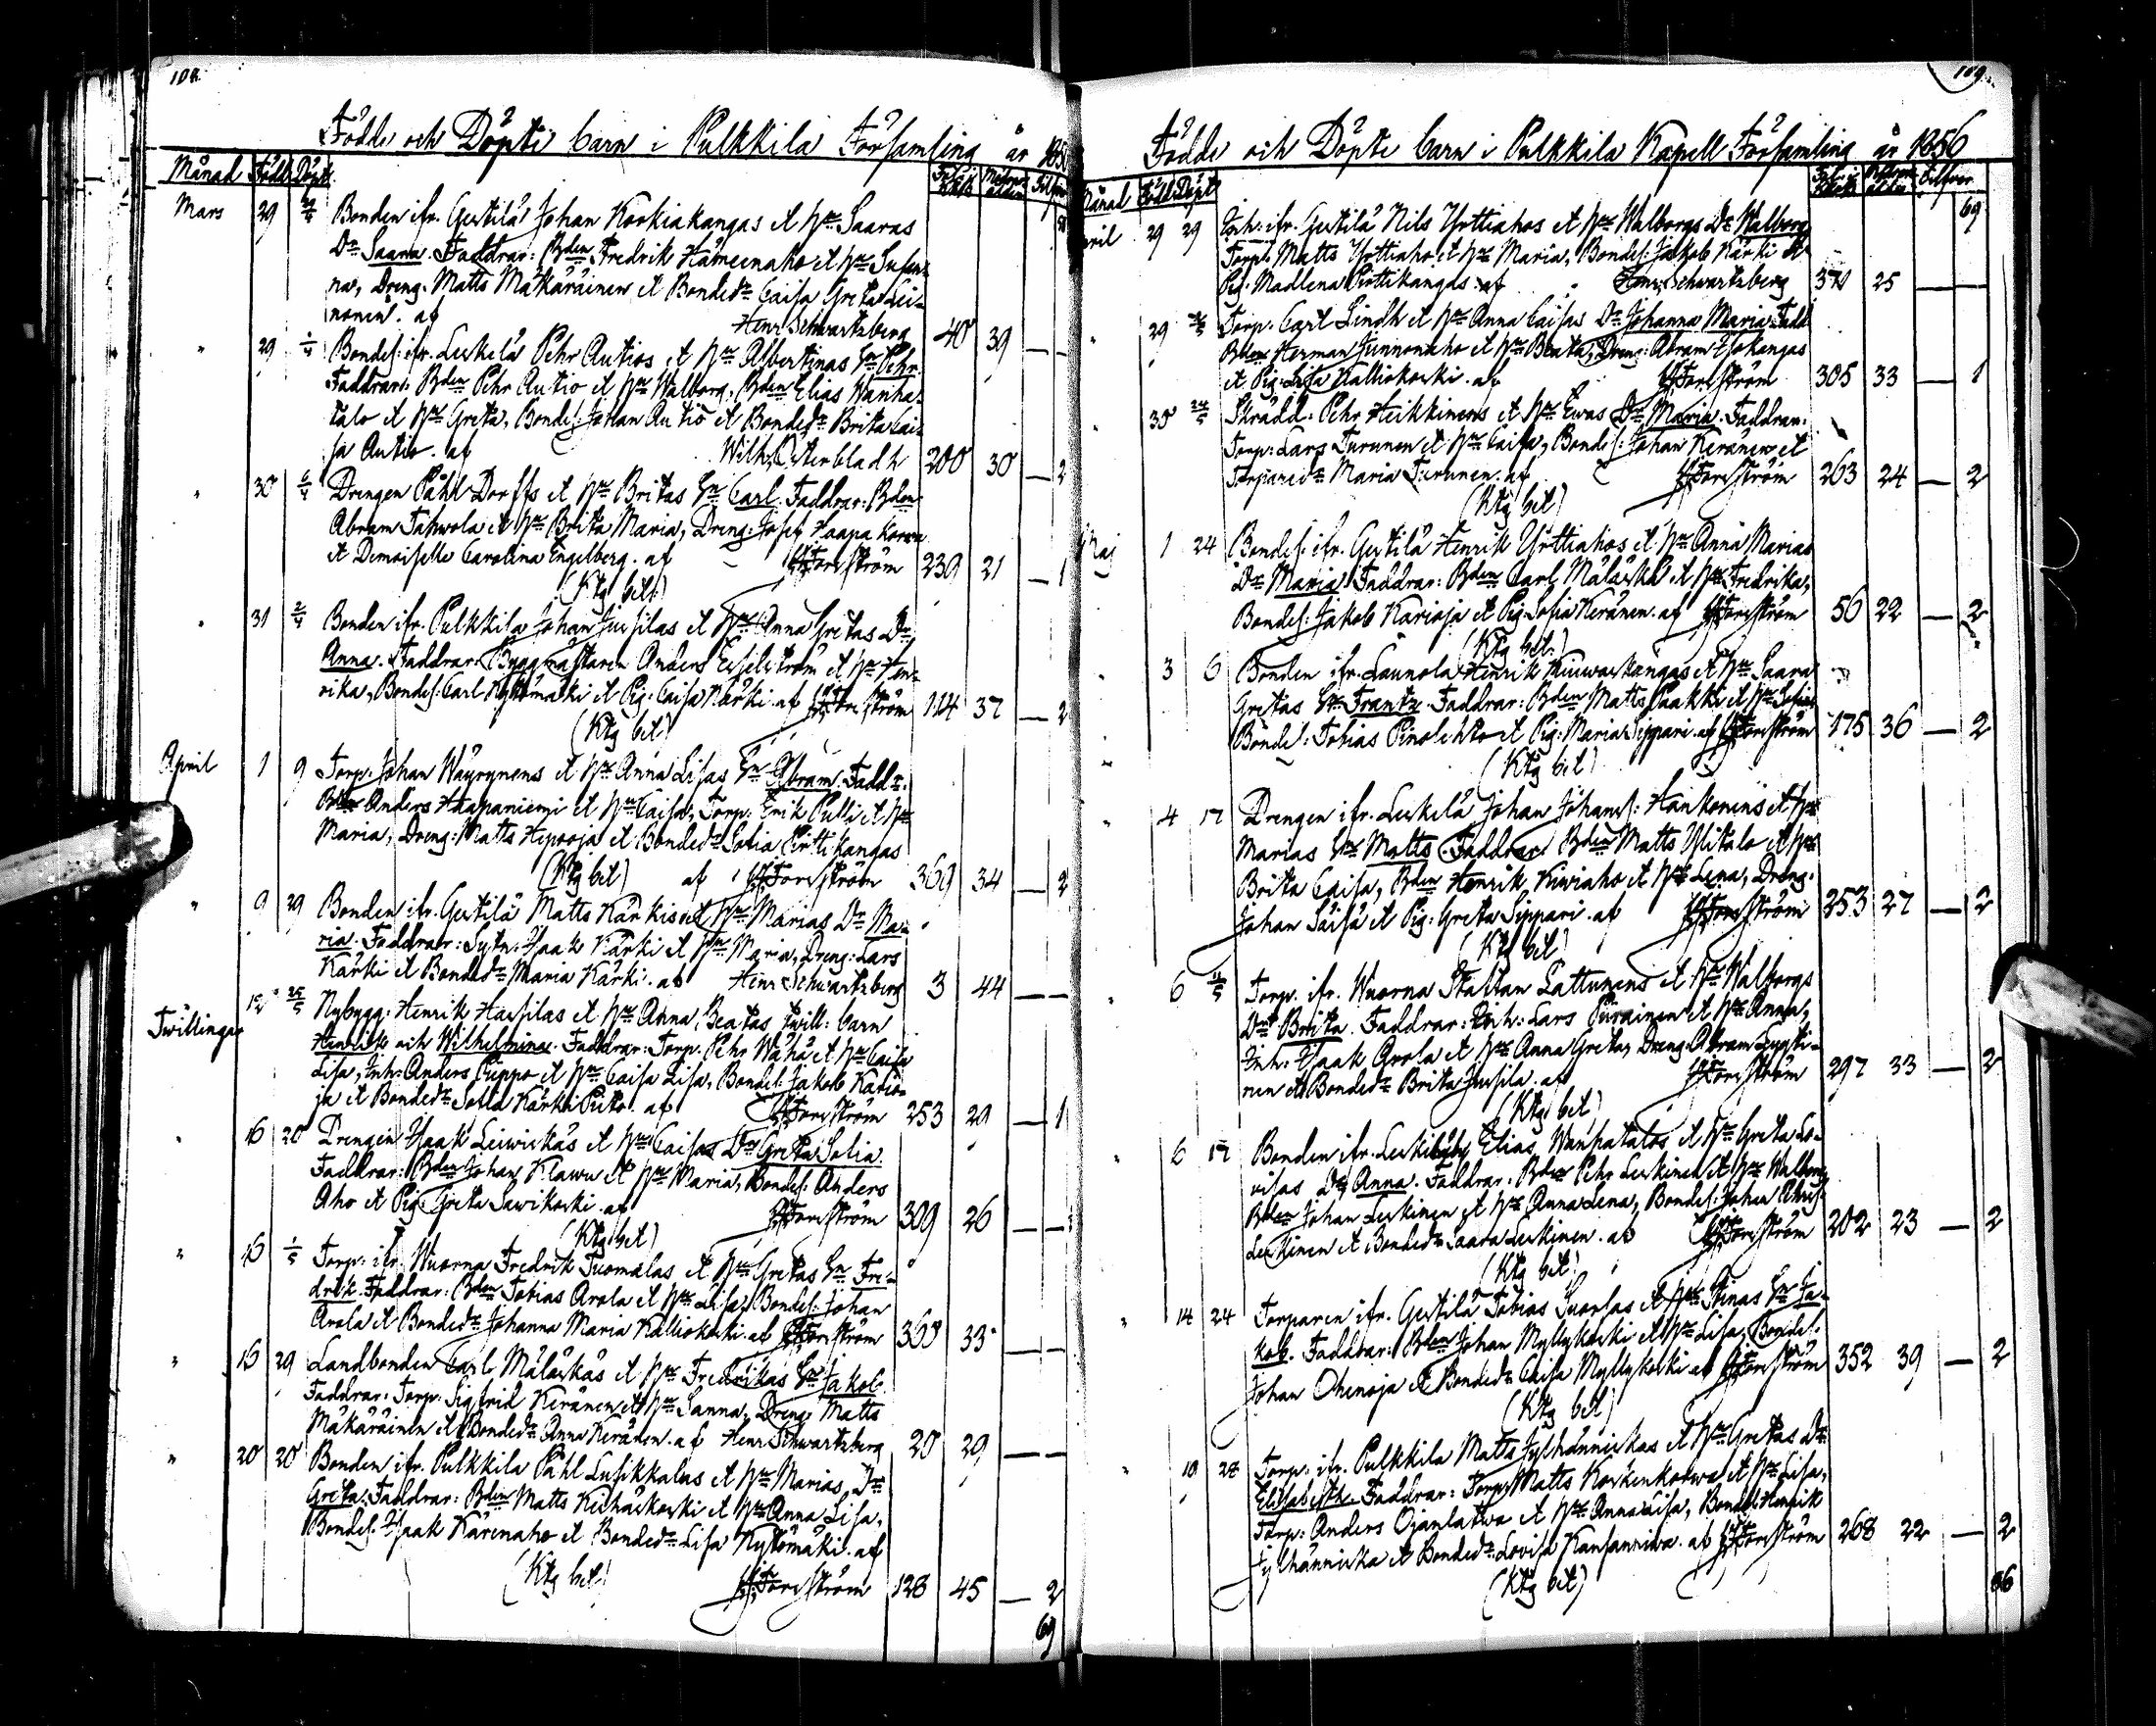 108.
Födde och Döpte barn i Pulkkila Församling år 185
Månad Född Döpt
Mars 29 Bonden ifr. Gertilä Johan Korkiakangas et hu Saaras
Dr Saara. Faddrar: Bden Fredrik Hämeenaho et hu Susan-
na, Dreng. Matts Makäräinen et Bondedr Caisa Greta Lei-
nonen. af Henr Schwartzberg 40 39 —
" 29 1/4 Bondes: ifr. Leskelä Pehr Autios et hu Albertinas Sn Pehr.
Faddrar: Bden Pehr Autio et hu Walborg, Bden Elias Wanha-
talo et hu Greta, Bondes: Johan Autio et Bondedr Brita Cai-
sa Autio. af Wilh. Österbladh 200 30 — 2
" 30 6/4 Drengen Påhl Dorffs et hu Britas Sn Carl. Faddrar: Bden
Abram Tahwola et hu Brita Maria, Dreng: Josef Haapakorwa
et Demoiselle Carolina Engelberg. af Forsström 239 21 — 1
(Ktg bet)
" 31 2/4 Bonden ifr. Pulkkila Johan Jussilas et hu Anna Gretas Dr
Anna. Faddrar: Byggmästaren Anders et hu Hen-
rika, Bondes: Carl Kyttömäki et Pig: Caisa Kärki. af Forsström 114 37 — 2
(Ktg bet)
April 1 9 Torp: Johan Wäyrynens et hu Anna Lisas Sn Abram. Faddr.
Bden Anders Haapaniemi et hu Caisa, Torp: Erik Pulli et hu
Maria, Dreng: Matts Heposja et Bondedr Sofia Piittikangas
(Ktg bet) af Forsström 369 34 — 2
" 9 29 Bonden ifr. Gertilä Matts Kärkis et hu Marias Dr Ma-
ria. Faddrar: Sytn: Isaak Kärki et hu Maria, Dreng: Lars
Kärki et Bondedr Maria Kärki. af Henr Schwartzberg 3 44 — —
Twillingar 12 25/5 Nybygg: Henrik Hassilas et hu Anna Beatas twill: barn
Henrik och Wilhelmina. Faddrar: Torp. Pehr Wähä et hu Caisa
Lisa, Inh: Anders Piippo et hu Caisa Lisa, Bondes: Jakob Kario-
ja et Bondedr Sofia Kärki af Forsström 253 29 — 1
" 16 20 Drengen Isaak Leiwiskäs et hu Caisas Dr Greta Sofia.
Faddrar: Bden Johan Klawu et hu Maria, Bondes: Anders
Aho et Pig: Greta Sawikoski. af Forsström 309 26 — —
(Ktg bet)
" 16 1/5 Torp: ifr. Wuorna Fredrik Tuomalas et hu Gretas Sn Fre-
drik. Faddrar: Bden Tobias Arola et hu Lisa, Bondes: Johan
Arola et Bondedr Johanna Maria Kalliokoski. af Forsström 360 33 — —
" 16 29 Landbonden Carl Mäläskäs et hu Fredrikas Sn Jakob.
Faddrar: Torp: Sigfrid Keränen et hu Sanna, Dreng: Matts
Mäkäräinen et Bondedr Anna Keränen. af Henr Schwartzberg 20 29 — —
" 20 20 Bonden ifr. Pulkkila Påhl Lusikkalas et hu Marias Dr
Greta. Faddrar: Bden Matts Keihäskoski et hu Anna Lisa,
Bondes: Isaak Kärenaho et Bondedr Lisa Kyttömäki. af
(Ktg bet) Forsström 128 45 — 2
69
109.
Födde och Döpte barn i Pulkkila Kapell Församling år 1856
Månad Född Döpt Silfver
69
April 29 29 Inh: ifr. Gertilä Nils Yrttiahos et hu Walborgs Dr Walborg
Torp: Matts Yrttiaho et hu Maria, Bondes: Jakob Kärki et
Pig: Madlena Piittikangas. af Henr Schwartzberg 370 25 — —
" 29 Torp: Carl Lindh et hu Anna Caisas Dr Johanna Maria. Fadd
Bden Herman Junnonaho et hu Beata, Dreng: Abram Isokangas
et Pig: Lisa Kalliokoski. af Forsström 305 33 — 1
" 30 24/5 Skrädd: Pehr Heikkinens et hu Ewas Dr Maria. Faddrar:
Torp: Lars Turunen et hu Caisa, Bondes: Johan Keränen et
Torparedr Maria Turunen. af Forsström 263 24 — 2
(Ktg bet)
Maj 1 24 Bondes: ifr. Gertilä Henrik Yrttiahos et hu Anna Marias
Dr Maria. Faddrar: Bden Carl Mäläskä et hu Fredrika,
Bondes: Jakob Karioja et Pig: Sofia Keränen. af Forsström 56 22 — 2
(Ktg bet)
" 3 6 Bonden ifr. Laumola Henrik Kiuwaskangas et hu Saara
Gretas Sn Frantz. Faddrar: Bden Matts Paakki et hu Sofia,
Bondes: Tobias Pinolehto et Pig: Maria Sippari. af Forsström 175 36 — 2
(Ktg bet)
" 4 17 Drengen ifr. Leskelä Johan Johanss: Hankonens et hu
Marias Sn Matts. Faddrar: Bden Matts Ylitalo et hu
Brita Caisa, Bden Henrik Kiwiaho et hu Lena, Dreng:
Johan Säisä et Pig: Greta Sippari. af Forsström 253 27 — 2
(Ktg bet)
" 6 11/5 Torp. ifr. Wuorna Staffan Lattunens et hu Walborgs
Dr Brita. Faddrar: Inh: Lars Piirainen et hu Anna,
Inh: Isaak Arola et hu Anna Greta, Dreng: Abram
nen et Bondedr Brita Jussila. af Forsström 297 33 — 2
(Ktg bet)
" 6 17 Bonden ifr. Leskelä Elias Wanhatalos et hu Greta Lo-
visas Dr Anna. Faddrar: Bden Pehr Leskinen et hu Walborg
Bden Johan Leskinen et hu Anna Lena, Bondes: Johan
Leskinen et Bondedr Saara Leskinen. af Forsström 202 23 — 2
(Ktg bet)
" 14 24 Torparen ifr. Gertilä Tobias Suorlas et hu Stinas Sn Ja-
kob. Faddrar: Bden Johan Myllykoski et hu Lisa, Bondes:
Johan Ohenoja et Bondedr Caisa Myllykoski af Forsström 352 39 — 2
(Ktg bet)
" 19 28 Torp: ifr. Pulkkila Matts Jylhänniskas et hu Gretas Dr
Elisabeth. Faddrar: Torp: Matts Koskenkorwa et hu Lisa,
Torp: Anders Ojanlatwa et hu Anna Lisa, Bondes: Henrik
Jylhänniska et Bondedr Lovisa Kansanniwa. af Forsström 268 22 — 2
(Ktg bet)
86